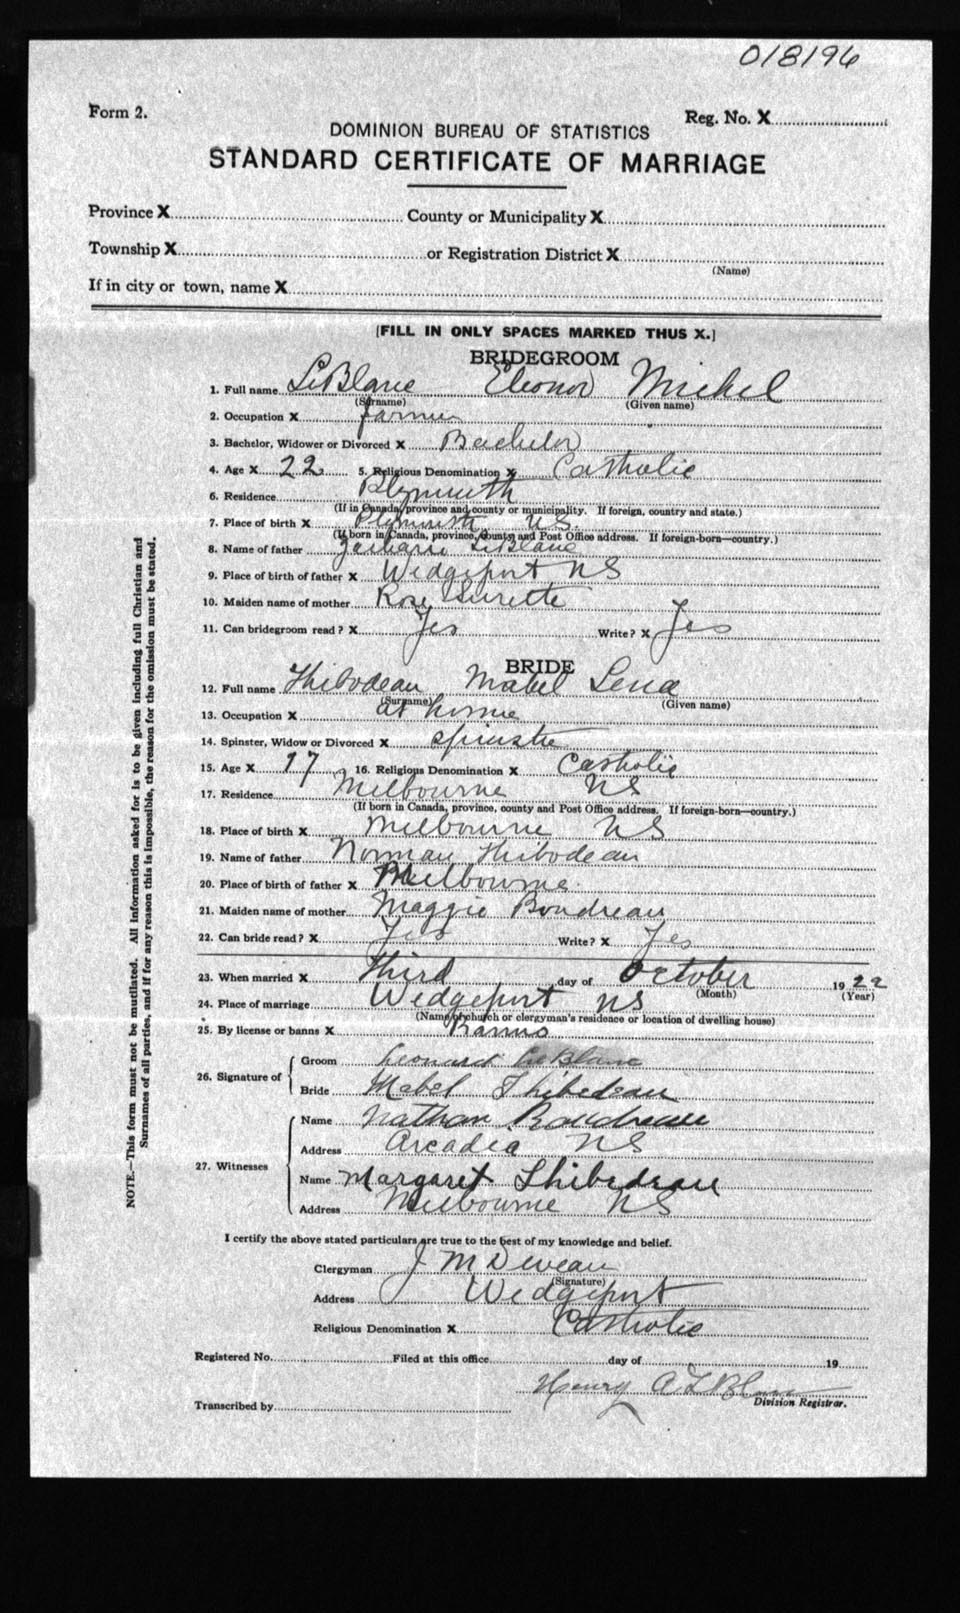 018196
Form 2.
Reg. No. X
DOMINION BUREAU OF STATISTICS
STANDARD CERTIFICATE OF MARRIAGE
Province X County or Municipality X
Township X or Registration District X
(Name)
If in city or town, name X
[FILL IN ONLY SPACES MARKED THUS X.]
BRIDEGROOM
1. Full name LeBlanc Eleonor Michel
(Surname) (Given name)
2. Occupation X farmer
3. Bachelor, Widower or Divorced X Bachelor
4. Age X 22 5. Religious Denomination X Catholic
6. Residence Plymouth
(If in Canada, province and county or municipality. If foreign, country and state.)
7. Place of birth X Plymouth N.S.
(If born in Canada, province, county and Post Office address. If foreign-born—country.)
8. Name of father LeBlanc
9. Place of birth of father X Wedgeport NS
10. Maiden name of mother Rose Surette
11. Can bridegroom read? X Yes Write? X Yes
BRIDE
12. Full name Thibodeau Mabel Lena
(Surname) (Given name)
13. Occupation X at home
14. Spinster, Widow or Divorced X spinster
15. Age X 17 16. Religious Denomination X Catholic
17. Residence Melbourne NS
(If born in Canada, province, county and Post Office address. If foreign-born—country.)
18. Place of birth X Melbourne NS
19. Name of father Norman Thibodeau
20. Place of birth of father X Melbourne
21. Maiden name of mother Maggie Boudreau
22. Can bride read? X Yes Write? X Yes
23. When married X third day of October 1922
(Month) (Year)
24. Place of marriage Wedgeport NS
(Name of church or clergyman's residence or location of dwelling house)
25. By license or banns X Banns
26. Signature of Groom Leonard LeBlanc
Bride Mabel Thibedeau
27. Witnesses Name Nathan Boudreau
Address Arcadia NS
Name Margaret Thibedeau
Address Melbourne NS
I certify the above stated particulars are true to the best of my knowledge and belief.
Clergyman J M Deveau
(Signature)
Address Wedgeport
Religious Denomination X Catholic
Registered No. Filed at this office day of 19
Henry A LeBlanc
Division Registrar.
Transcribed by
NOTE.—This form must not be mutilated. All information asked for is to be given including full Christian and
Surnames of all parties, and if for any reason this is impossible, the reason for the omission must be stated.